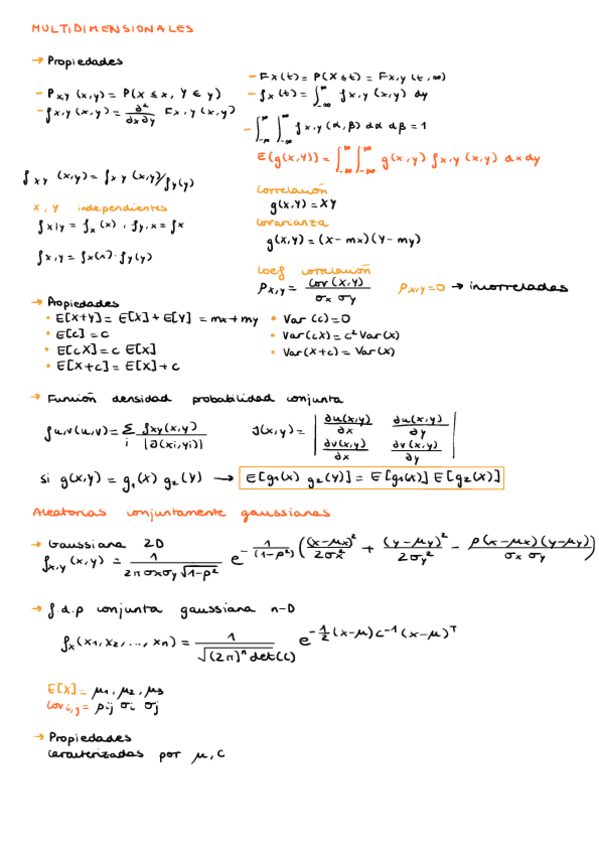 MULTIDIMENSIONALES
→ Propiedades
- P_{X,Y}(x,y) = P(X ≤ x, Y ∈ y)
- f_{X,Y}(x,y) = ∂²/∂x∂y F_{X,Y}(x,y)
- F_X(t) = P(X ≤ t) = F_{X,Y}(t,∞)
- f_X(t) = ∫_{-∞}^{∞} f_{X,Y}(x,y) dy
- ∫_{-∞}^{∞} ∫_{-∞}^{∞} f_{X,Y}(α,β) dα dβ = 1
E(g(X,Y)) = ∫_{-∞}^{∞} ∫_{-∞}^{∞} g(x,y) f_{X,Y}(x,y) dx dy
f_{XY}(x,y) = f_{XY}(x,y)/f_Y(y)
X, Y independientes
f_{X|Y} = f_X(x), f_{Y,X} = f_X
f_{X,Y} = f_X(x)·f_Y(y)
Correlación
g(X,Y) = XY
Covarianza
g(X,Y) = (X-mx)(Y-my)
Coef correlación
ρ_{X,Y} = Cov(X,Y)/σx σy
ρ_{X,Y}=0 → incorrelados
→ Propiedades
• E[X+Y] = E[X] + E[Y] = mx+my
• E[c] = c
• E[cX] = c E[X]
• E[X+c] = E[X] + c
• Var(c)=0
• Var(cX) = c² Var(X)
• Var(X+c) = Var(X)
→ Función densidad probabilidad conjunta
f_{U,V}(u,v) = Σ_i f_{XY}(x,y)/|J(xi,yi)|
J(x,y) = | ∂u(x,y)/∂x ∂u(x,y)/∂y |
| ∂v(x,y)/∂x ∂v(x,y)/∂y |
si g(x,y) = g₁(x) g₂(y) → E[g₁(x) g₂(y)] = E[g₁(x)] E[g₂(x)]
Aleatorias conjuntamente gaussianas
→ Gaussiana 2D
f_{X,Y}(x,y) = 1/(2πσxσy√(1-ρ²)) e^{-1/(1-ρ²) ((x-μx)²/2σx² + (y-μy)²/2σy² - ρ(x-μx)(y-μy)/σx σy)}
→ f.d.p conjunta gaussiana n-D
f_X(x₁,x₂,...,xn) = 1/√((2π)ⁿ det(C)) e^{-1/2 (x-μ)C⁻¹(x-μ)ᵀ}
E[X] = μ₁, μ₂, μ₃
Cov_{i,j} = ρij σi σj
→ Propiedades
caracterizadas por μ, C